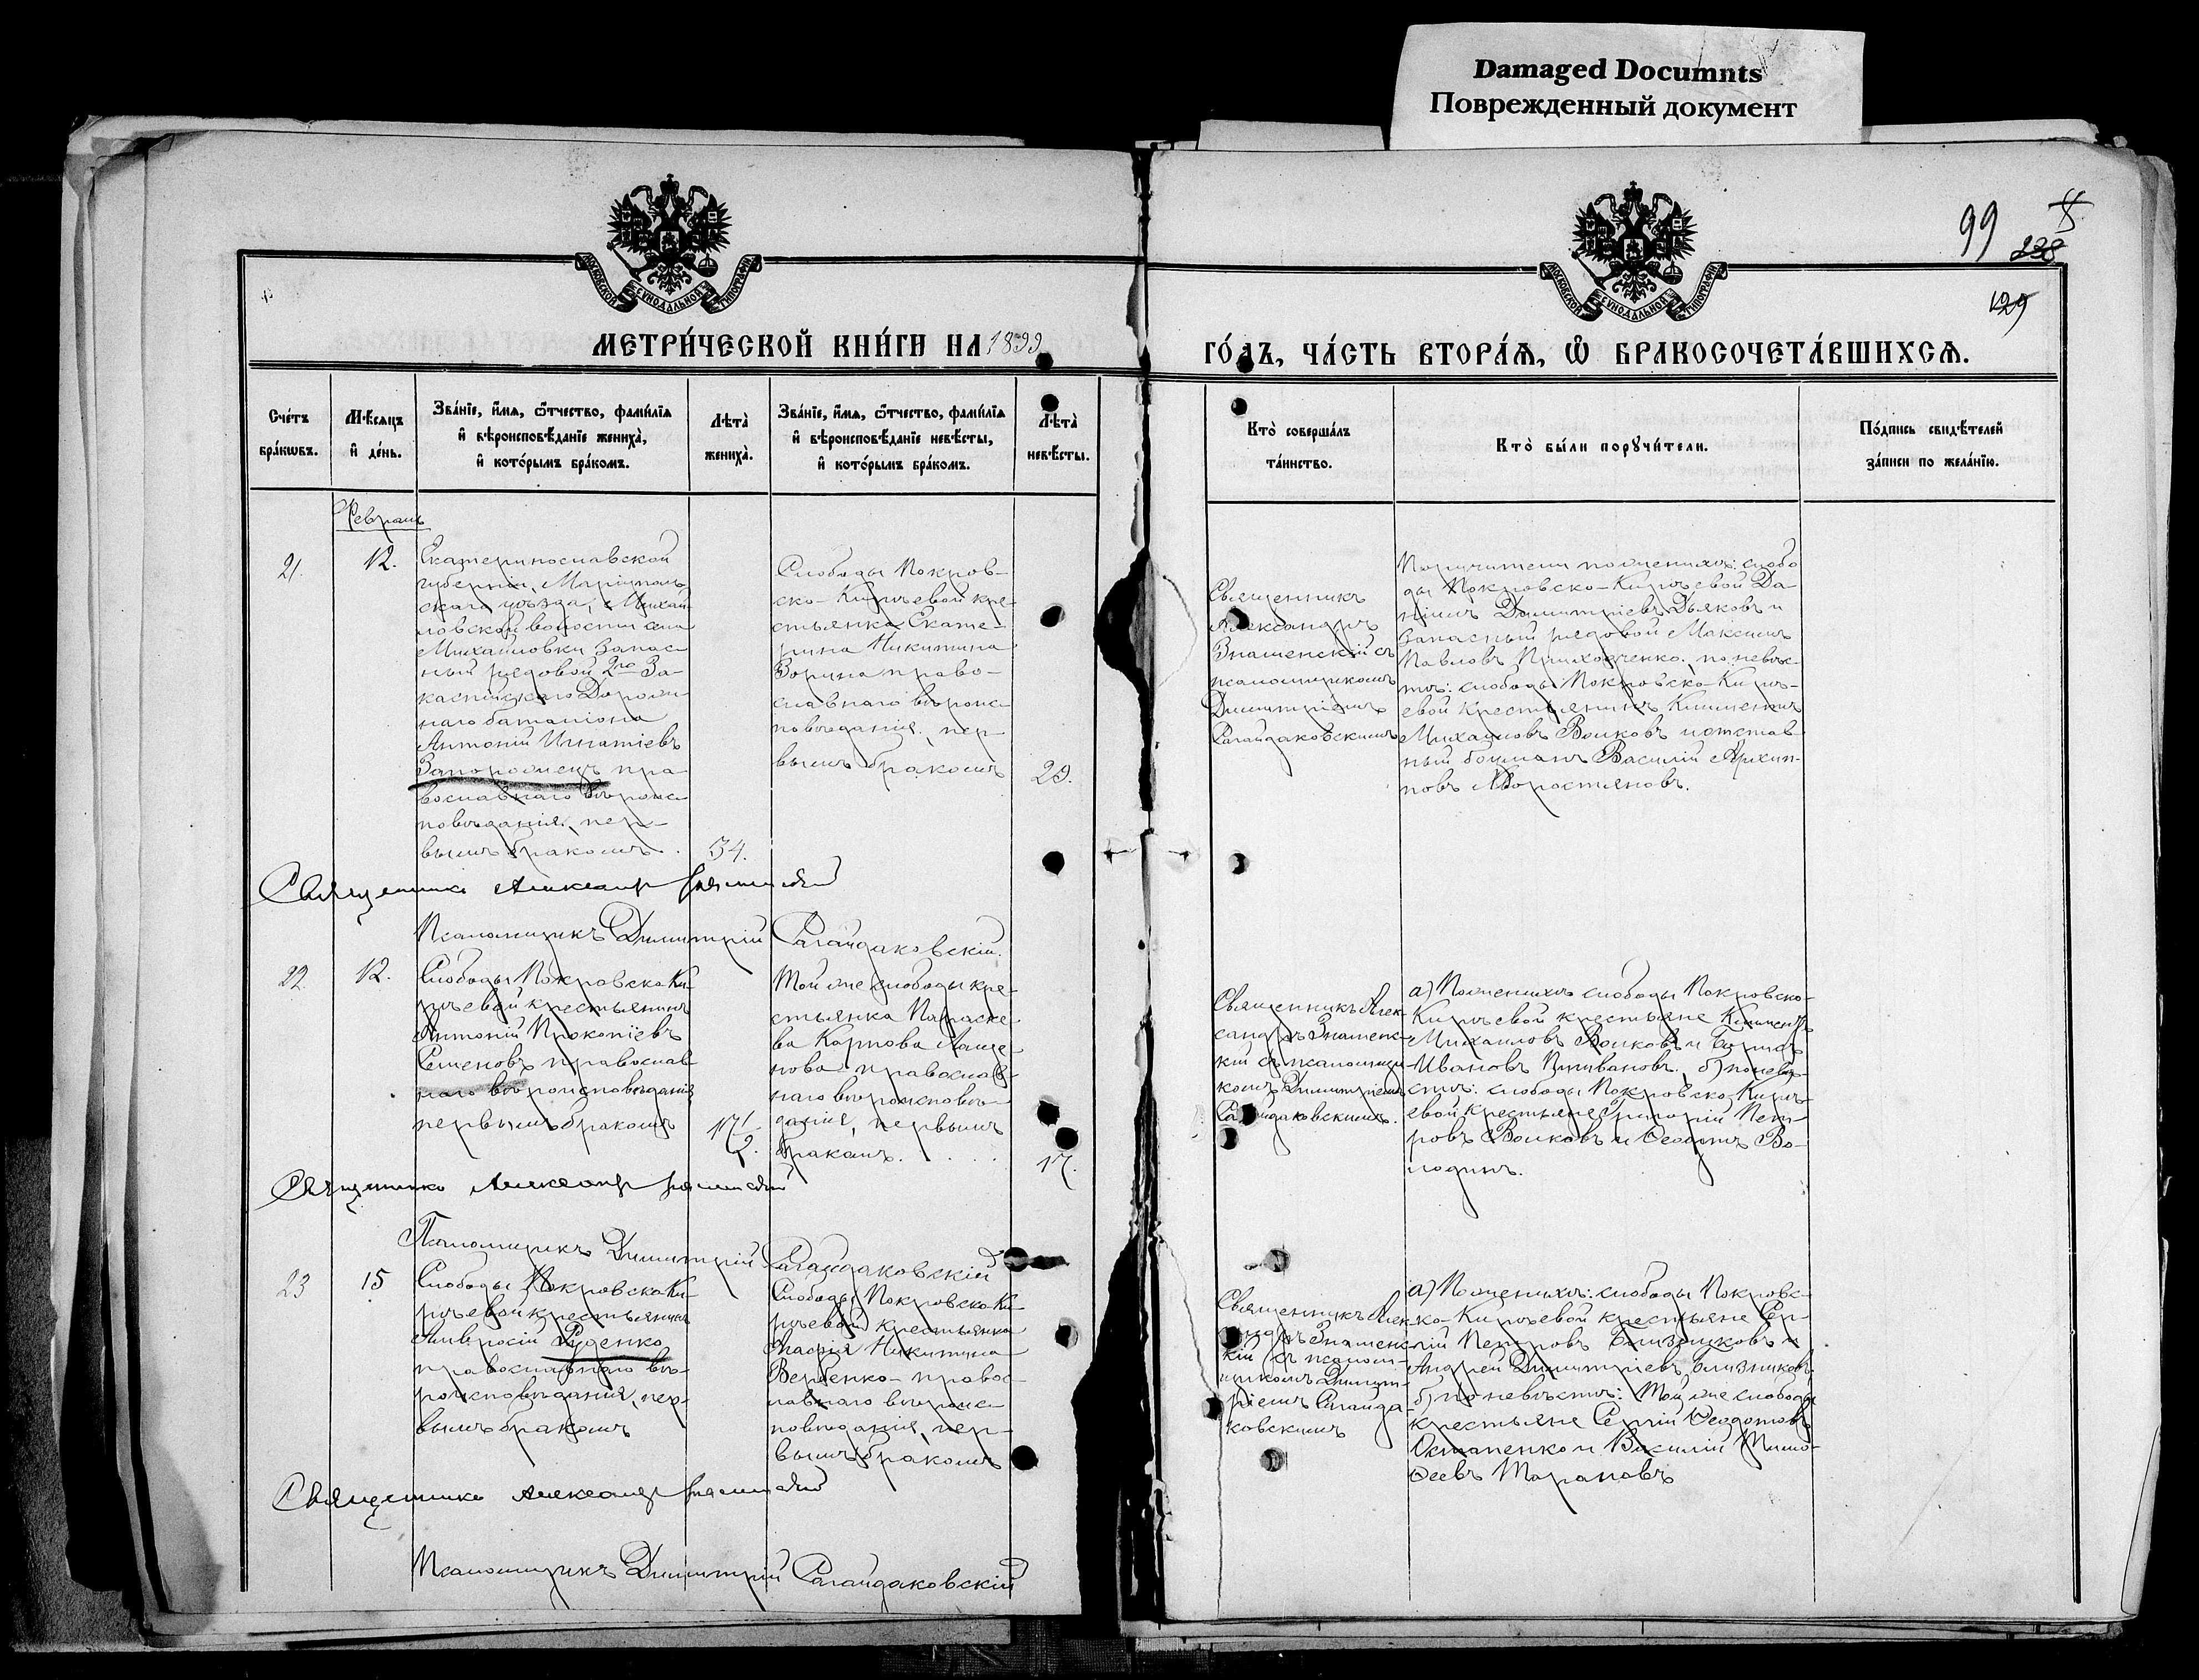 Damaged Documnts
Поврежденный документ
99
8
238
129
МОСКОВСКОЙ СѴНОДАЛЬНОЙ ТИПОГРАФІИ
МОСКОВСКОЙ СѴНОДАЛЬНОЙ ТИПОГРАФІИ
МЕТРИ́ЧЕСКОЙ КНИ́ГИ НА 1899
ГО́ДЪ, ЧА́СТЬ ВТОРА́Ѧ, Ѽ БРАКОСОЧЕТА́ВШИХСѦ.
Сче́тъ
бра́кѡвъ.
Мѣ́сяцъ
и҆ де́нь.
Зва́нїе, и҆́мѧ, ѻ҆́тчество, фамилїѧ
и҆ вѣроисповѣ́данїе жениха̀,
и҆ кото́рымъ бра́комъ.
Лѣта̀
жениха̀.
Зва́нїе, и҆́мѧ, ѻ҆́тчество, фамилїѧ
и҆ вѣроисповѣ́данїе невѣ́сты,
и҆ кото́рымъ бра́комъ.
Лѣта̀
невѣ́сты.
Кто̀ соверша́лъ
та́инство.
Кто̀ бы́ли порꙋчи́тели.
По́дпись свидѣ́телей
за́писи по жела́нїю.
Февраль
21.
12.
Екатеринославской
губерніи, Маріуполь
скаго уѣзда, Михай
ловской волости села
Михайловки запас
ный рядовой 2го За
каспійскаго Дорож
наго баталіона
Антоній Игнатіевъ
Запорожецъ пра
вославнаго вѣроис
повѣданія, пер-
вымъ бракомъ.
34.
Слободы Покров-
ско-Кирѣевой кре
стьянка Екате-
рина Никитина
Зорина право-
славнаго вѣроис
повѣданія, пер
вымъ бракомъ
29.
Священникъ
Александръ
Знаменскій съ
псаломщикомъ
Димитріемъ
Сагайдаковскимъ
Поручители по женихѣ: слобо
ды Покровско-Кирѣевой Да-
ніилъ Димитріевъ Дьяковъ и
запасный рядовой Максимъ
Павловъ Приходченко. по невѣс
тѣ: слободы Покровско-Кирѣ-
евой крестьянинъ Климентъ
Михайловъ Волковъ и отстав
ный боцманъ Василій Архип-
повъ Хворостяновъ.
Священникъ Александръ Знаменскій
Псаломщикъ Димитрій Сагайдаковскій.
22.
12.
Слободы Покровско Ки
рѣевой крестьянинъ
Антоній Прокопіевъ
Семеновъ православ
наго вѣроисповѣданія
первымъ бракомъ
17 1/2.
Той же слободы кре
стьянка Параске
ва Карпова Лаще
нова православ
наго вѣроисповѣ-
данія, первымъ
бракомъ. . . . .
17.
Священникъ Алек
сандръ Знаменс
кій съ псаломщи
комъ Димитріемъ
Сагайдаковскимъ.
а) По женихѣ слободы Покровско
Кирѣевой крестьяне Климентъ
Михайловъ Волковъ и
Ивановъ б) по невѣ
стѣ: слободы Покровско Кирѣ-
евой крестьяне Григорій Пет
ровъ Волковъ и Ѳеодотъ Во-
лодинъ.
Священникъ Александръ Знаменскій
Псаломщикъ Димитрій Сагайдаковскій
23
15
Слободы Покровско Ки
рѣевой крестьянинъ
Амвросій Руденко
православнаго вѣ-
роисповѣданія, пер-
вымъ бракомъ
Слободы Покровско Ки
рѣевой крестьянка
Никитина
Вербенко правос
лавнаго вѣроис
повѣданія, пер-
вымъ бракомъ
Священникъ Алек
сандръ Знаменс
кій съ псалом-
щикомъ Димит-
ріемъ Сагайда
ковскимъ
а) По женихѣ: слободы Покровс-
ко-Кирѣевой крестьяне Сер-
гій Петровъ Близнюковъ и
Андрей Димитріевъ Близнюковъ,
б) по невѣстѣ: той же слободы
крестьяне Сергій Ѳеодотовъ
Остапенко и Василій Тимо-
ѳеевъ Тарановъ
Священникъ Александръ Знаменскій
Псаломщикъ Димитрій Сагайдаковскій